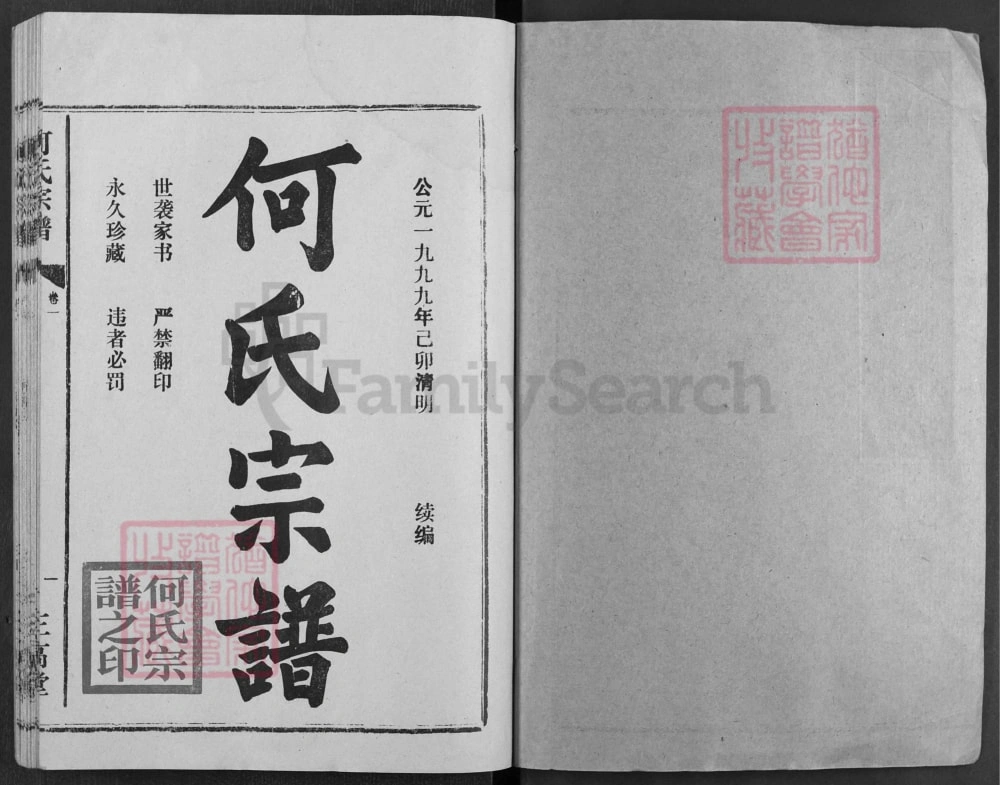 猶他家
譜學會
收藏
公元一九九九年己卯清明 续编
何氏宗譜
世袭家书 严禁翻印
永久珍藏 违者必罚
猶他家
譜學會
收藏
何氏宗
譜之印
何氏宗譜 卷一 一 三高堂
FamilySearch